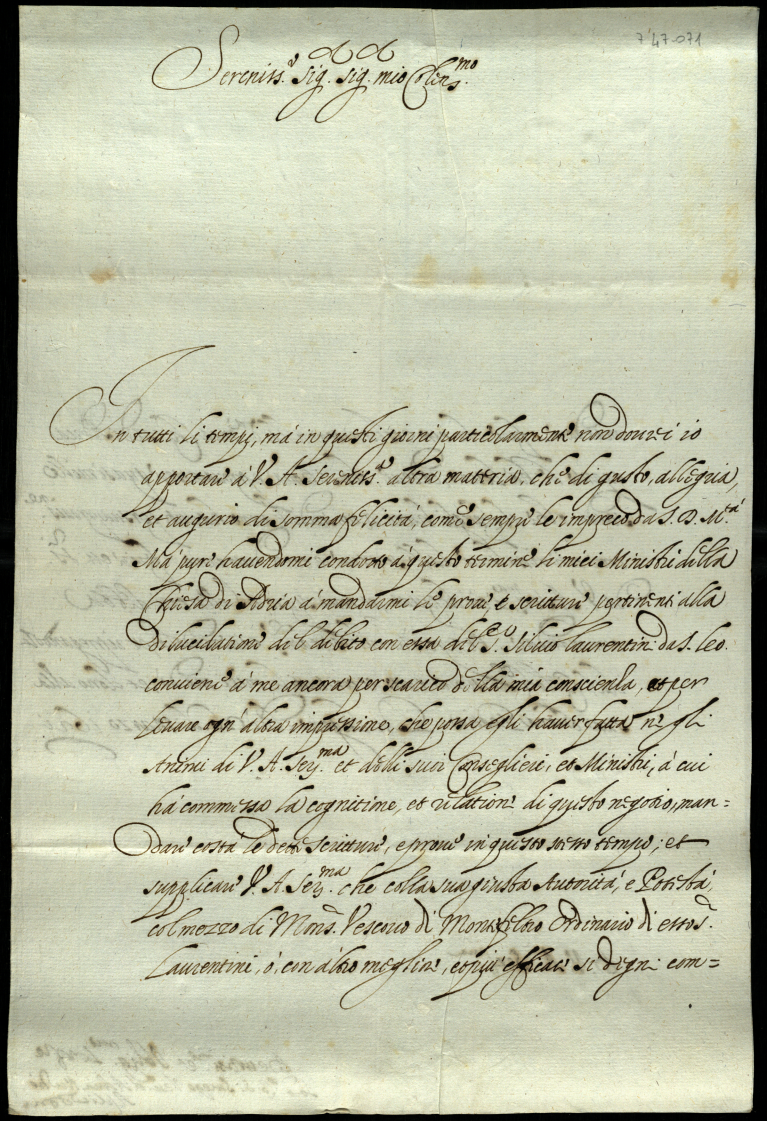 7'47-071
Sereniss.º Sig. Sig. mio Colens.mo
In tutti li tempi, má in questi giorni particolarmente non dovrei io
apportare á V. A. Sereniss.ª altra matteria, che di gusto, allegria,
et augurio di somma felicitá, come sempre le impreco da S. D. M.tá
Má pure havendomi condotto á questo termine li miei Ministri della
Chiesa di Adria á mandarmi le prove, e scritture pertinenti alla
dilucidatione del debito con essa del S.r Silvio Laurentin: da S. Leo.
conviene á me ancora per scarico della mia conscienza, et per
levare ogn'altra impressione, che possa egli haver fatta ne gli
Animi di V. A. Ser.ma et delli suoi Conseglieri, et Ministri, á cui
há commessa la cognitione, et relatione di questo negotio, man=
dare costá le dette scritture, e prove in questo stesso tempo; et
supplicare V. A. Ser.ma che colla sua giusta Autoritá, e Potestá,
col mezzo di Mons.r Vescovo di Montefeltro Ordinario di esso S.r
Laurentini, ó, con altro meglior, et piú efficace si degni com=